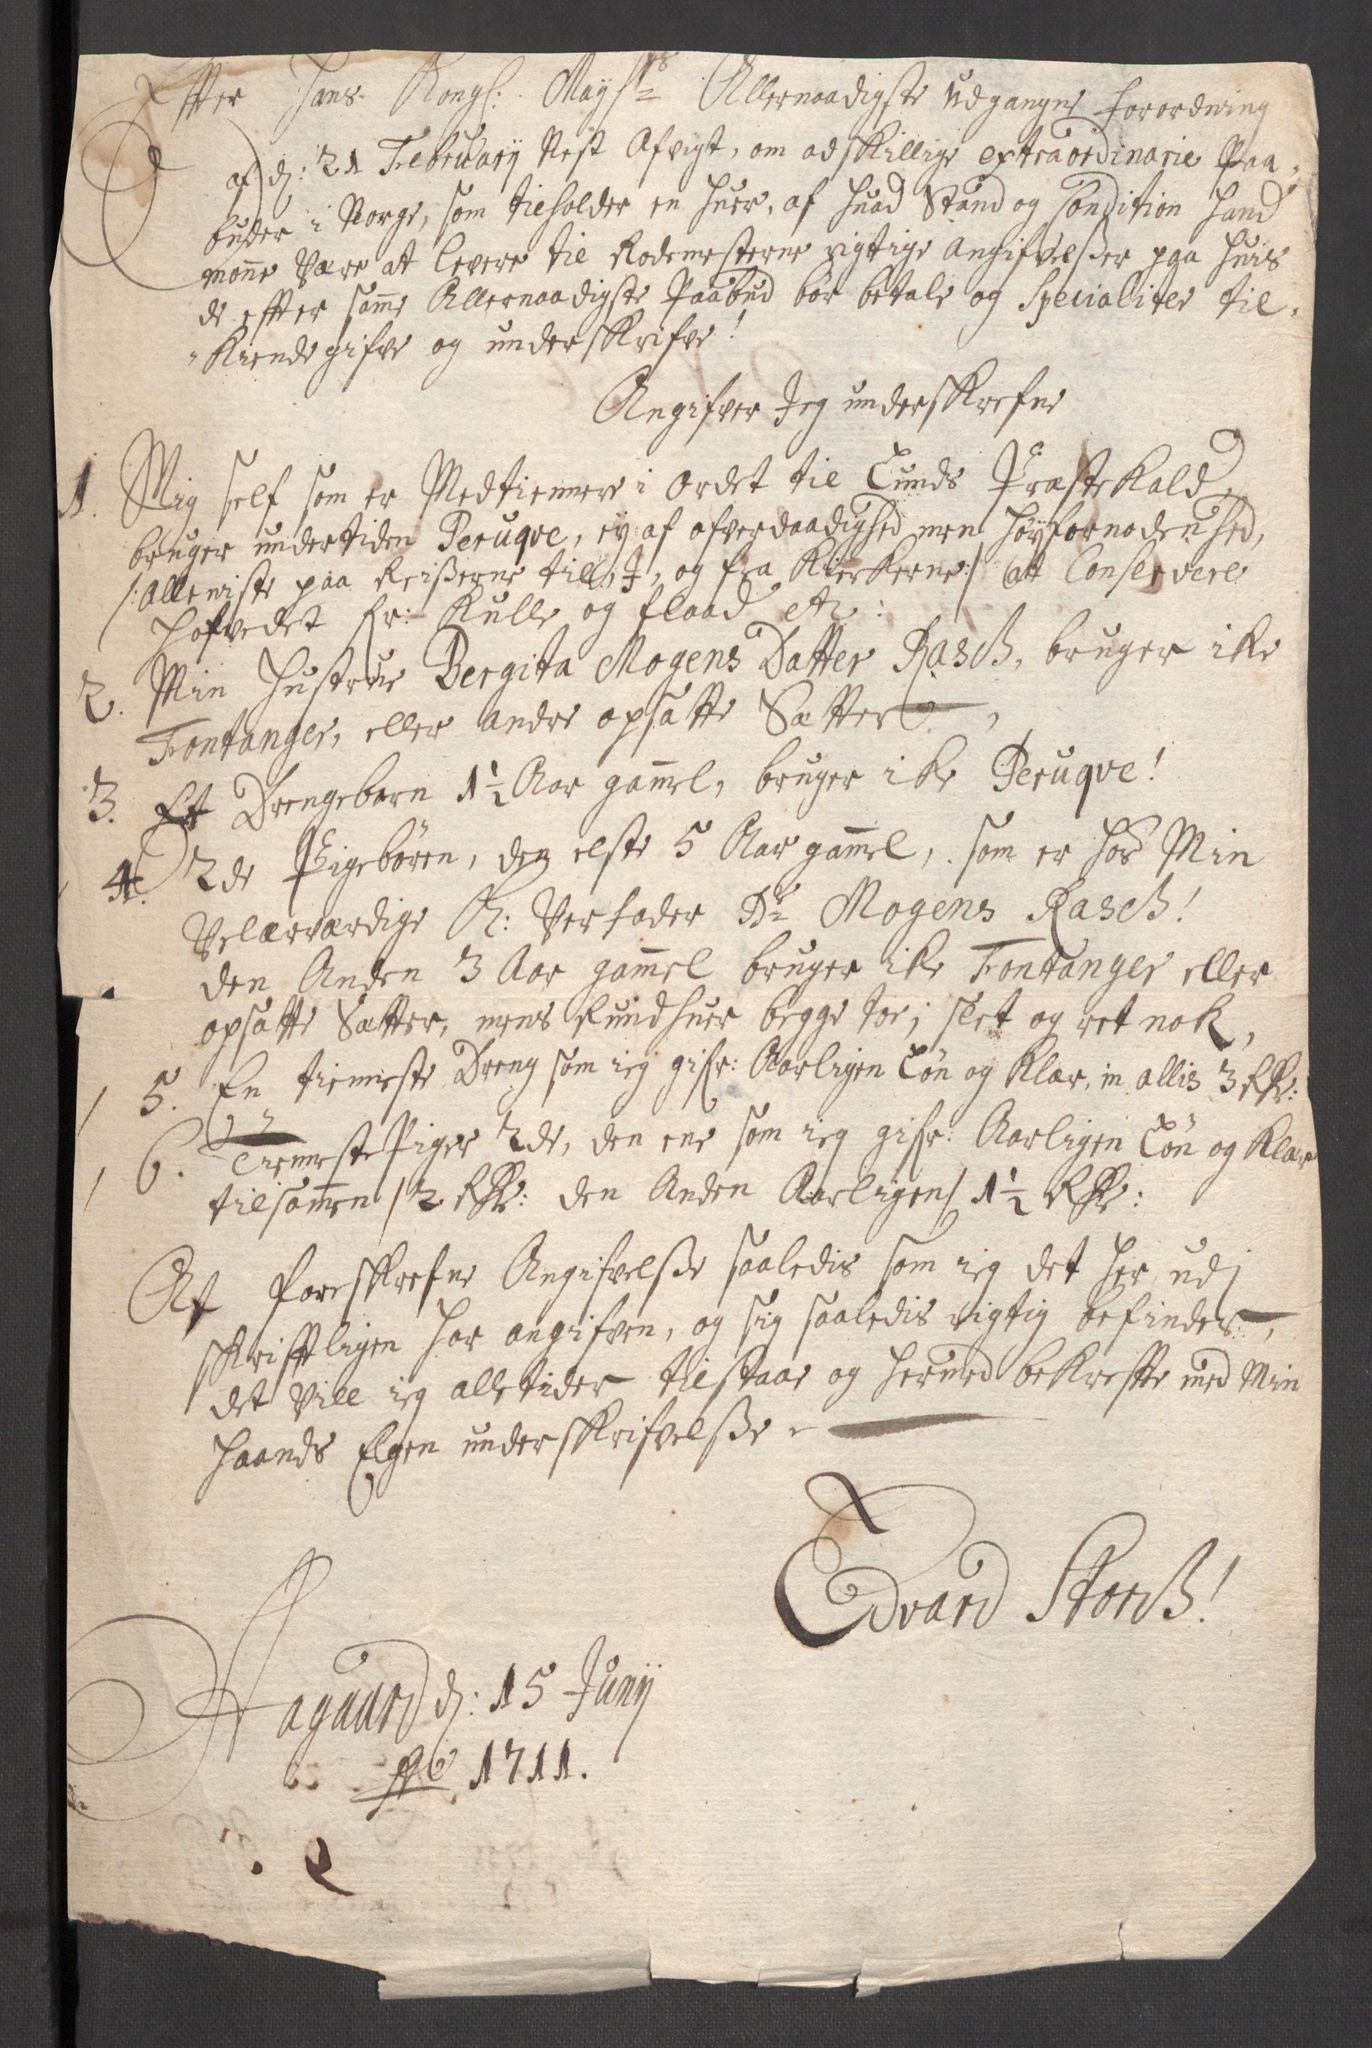 Effter Hans Kongl: Mayst:s Allernaadigste udgangne forordning
af d: 21 Februarij Nest Afvigt, om adskillige extraordinarie Paa-
buder i Norge, som tilholder en huer, af huad Stand og Condition hand
monne være at levere til Rodemesterne rigtige Angifvelßer paa huis
de effter samme Allernaadigste Paabud bør betale og Specialiter til-
kiende gifve og underskrifve!
Angifver Jeg underskrefne
1. Mig self som er Medtiennere i Ordet til Lunds Præstekald,
bruger undertiden Peruqve, ey af ofverdaadighed men høyfornødenhed,
/: Allewiste paa Reißerne till, J, og fra Kierkerne :/ att Conservere
Hofvedet fr: Kulle og flaad etc:
2. Min Hustrue Bergita Mogens Datter Rasch, bruger ike
Fontanger, eller andre opsatte Sætter,
3. Et Drengebarn 1½ Aar gammel, bruger ike Peruqve!
4. 2de Pigebören, den elste 5 Aar gammel, som er hos Min
Velærværdige K: Verfader Hr Mogens Rasch!
den Anden 3 Aar gammel bruger ike Fontanger eller
opsatte Sætter, mens Rundhuer begge toe, slet og ret nok,
5. En tienneste Dreng som ieg gifr: Aarligen Lön og Klær, in allis 3 Rdr:
6. Tienneste Piger 2de, den ene som ieg gifr: Aarligen Lön og Klær
tilsammen / 2 Rdr: den Anden Aarligen / 1½ Rdr:
At forskrefne Angifvelße saaledis som ieg det her udj
skrifftligen har angifven, og sig saaledis rigtig befinder,
det vill ieg alletider tilstaae og hermed bekreffte med Min
Haands Egen underskrifvelße
Edvard Storch!
Aaguard d: 15 Junij
Ao 1711.